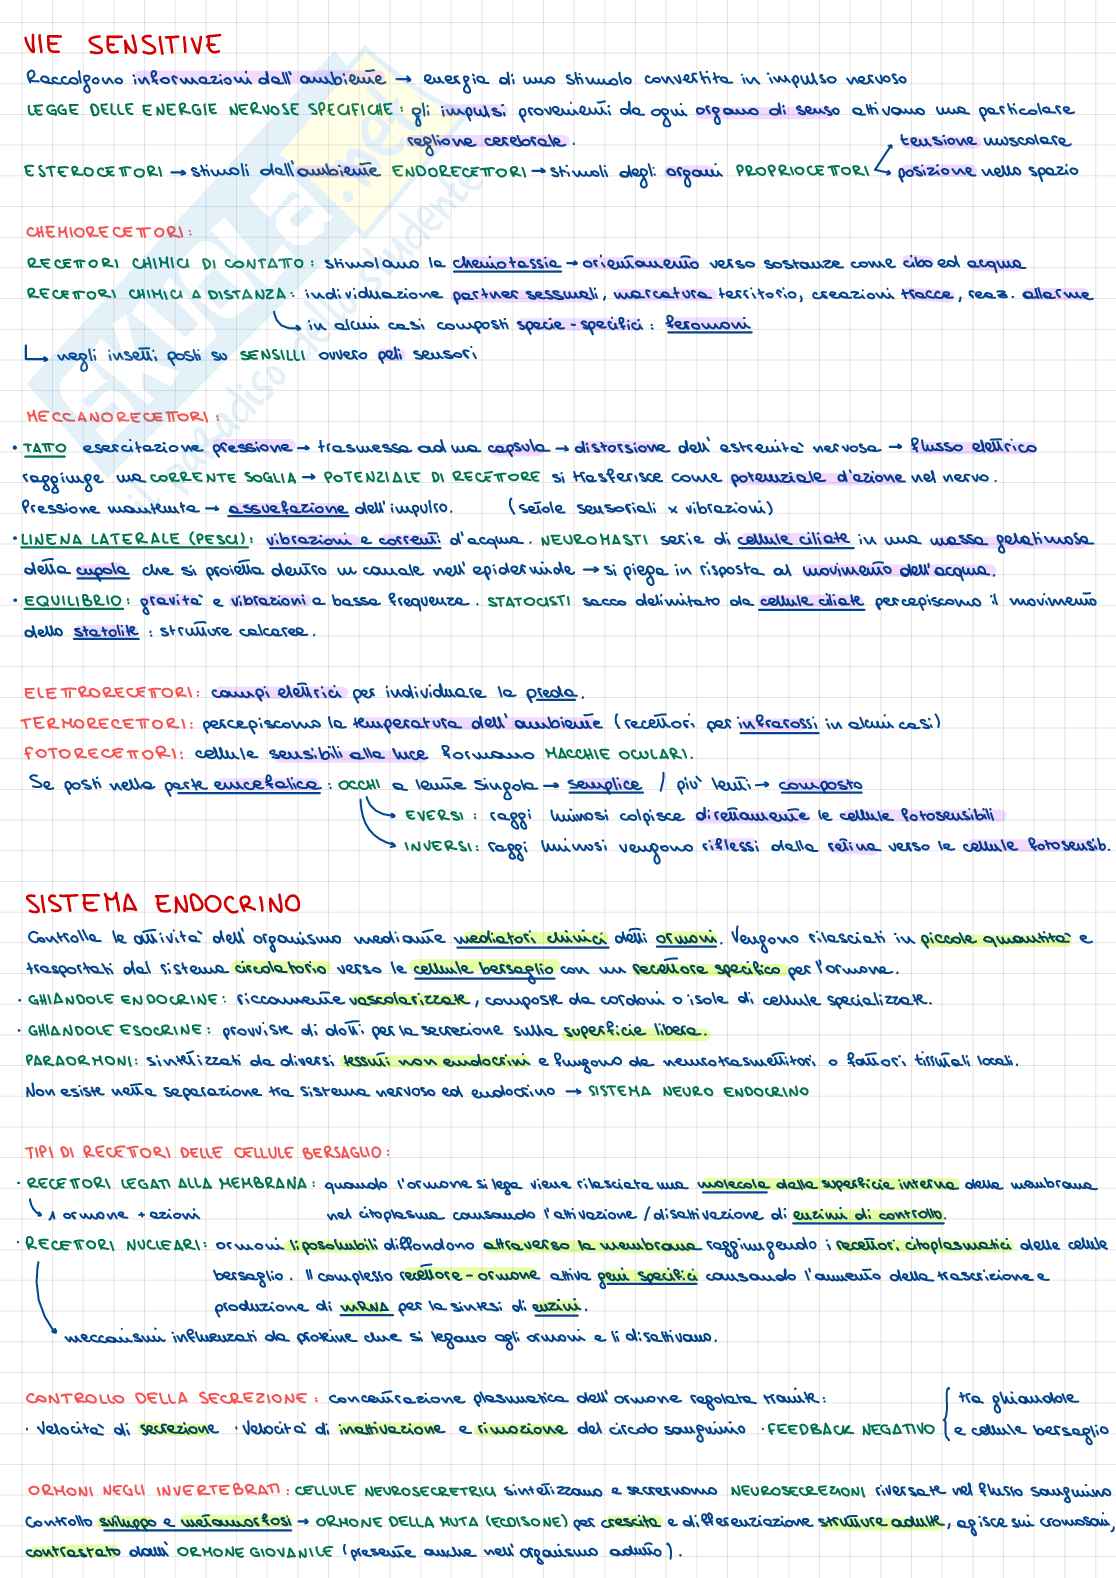 VIE SENSITIVE
Raccolgono informazioni dall'ambiente → energia di uno stimolo convertita in impulso nervoso
LEGGE DELLE ENERGIE NERVOSE SPECIFICHE: gli impulsi provenienti da ogni organo di senso attivano una particolare
reglione cerebrale.
tensione muscolare
ESTEROCETTORI → stimoli dall'ambiente ENDORECETTORI → stimoli degli organi PROPRIOCETTORI posizione nello spazio
CHEMIORECETTORI:
RECETTORI CHIMICI DI CONTATTO: stimolano la chemiotassia → orientamento verso sostanze come cibo ed acqua
RECETTORI CHIMICI A DISTANZA: individuazione partner sessuali, marcatura territorio, creazioni tracce, reaz. allarme
in alcuni casi composti specie-specifici: feromoni
negli insetti posti su SENSILLI ovvero peli sensori
MECCANORECETTORI:
• TATTO esercitazione pressione → trasmessa ad una capsula → distorsione dell'estremità nervosa → flusso elettrico
raggiunge una CORRENTE SOGLIA → POTENZIALE DI RECETTORE si trasferisce come potenziale d'azione nel nervo.
Pressione mantenuta → assuefazione dell'impulso. (setole sensoriali x vibrazioni)
• LINENA LATERALE (PESCI): vibrazioni e correnti d'acqua. NEUROMASTI serie di cellule ciliate in una massa gelatinosa
detta cupola che si proietta dentro un canale nell'epidermide → si piega in risposta al movimento dell'acqua.
• EQUILIBRIO: gravità e vibrazioni a bassa frequenza. STATOCISTI sacco delimitato da cellule ciliate percepiscono il movimento
dello statolite: strutture calcaree.
ELETTRORECETTORI: campi elettrici per individuare la preda.
TERMORECETTORI: percepiscono la temperatura dell'ambiente (recettori per infrarossi in alcuni casi)
FOTORECETTORI: cellule sensibili alla luce formano MACCHIE OCULARI.
Se posti nella parte encefalica: OCCHI a lente singola → semplice / più lenti → composto
EVERSI: raggi luminosi colpisce direttamente le cellule fotosensibili
INVERSI: raggi luminosi vengono riflessi dalla retina verso le cellule fotosensib.
SISTEMA ENDOCRINO
Controlla le attività dell'organismo mediante mediatori chimici detti ormoni. Vengono rilasciati in piccole quantità e
trasportati dal sistema circolatorio verso le cellule bersaglio con un recettore specifico per l'ormone.
· GHIANDOLE ENDOCRINE: riccamente vascolarizzate, composte da cordoni o isole di cellule specializzate.
· GHIANDOLE ESOCRINE: provviste di dotti per la secrezione sulla superficie libera.
PARAORMONI: sintetizzati da diversi tessuti non endocrini e fungono da neurotrasmettitori o fattori tissutali locali.
Non esiste netta separazione tra sistema nervoso ed endocrino → SISTEMA NEURO ENDOCRINO
TIPI DI RECETTORI DELLE CELLULE BERSAGLIO:
· RECETTORI LEGATI ALLA MEMBRANA: quando l'ormone si lega viene rilasciata una molecola dalla superficie interna della membrana
1 ormone + azioni nel citoplasma causando l'attivazione/disattivazione di enzimi di controllo.
· RECETTORI NUCLEARI: ormoni liposolubili diffondono attraverso la membrana raggiungendo i recettori citoplasmatici delle cellule
bersaglio. Il complesso recettore-ormone attiva geni specifici causando l'aumento della trascrizione e
produzione di mRNA per la sintesi di enzimi.
meccanismi influenzati da proteine che si legano agli ormoni e li disattivano.
CONTROLLO DELLA SECREZIONE: concentrazione plasmatica dell'ormone regolata tramite: tra ghiandole
· Velocità di secrezione · Velocità di inattivazione e rimozione dal circolo sanguinio · FEEDBACK NEGATIVO e cellule bersaglio
ORMONI NEGLI INVERTEBRATI: CELLULE NEUROSECRETRICI sintetizzano e secernono NEUROSECREZIONI riversate nel flusso sanguino
Controllo sviluppo e metamorfosi → ORMONE DELLA MUTA (ECDISONE) per crescita e differenziazione strutture adulte, agisce sui cromosomi,
contrastato dall' ORMONE GIOVANILE (presente anche nell'organismo adulto).